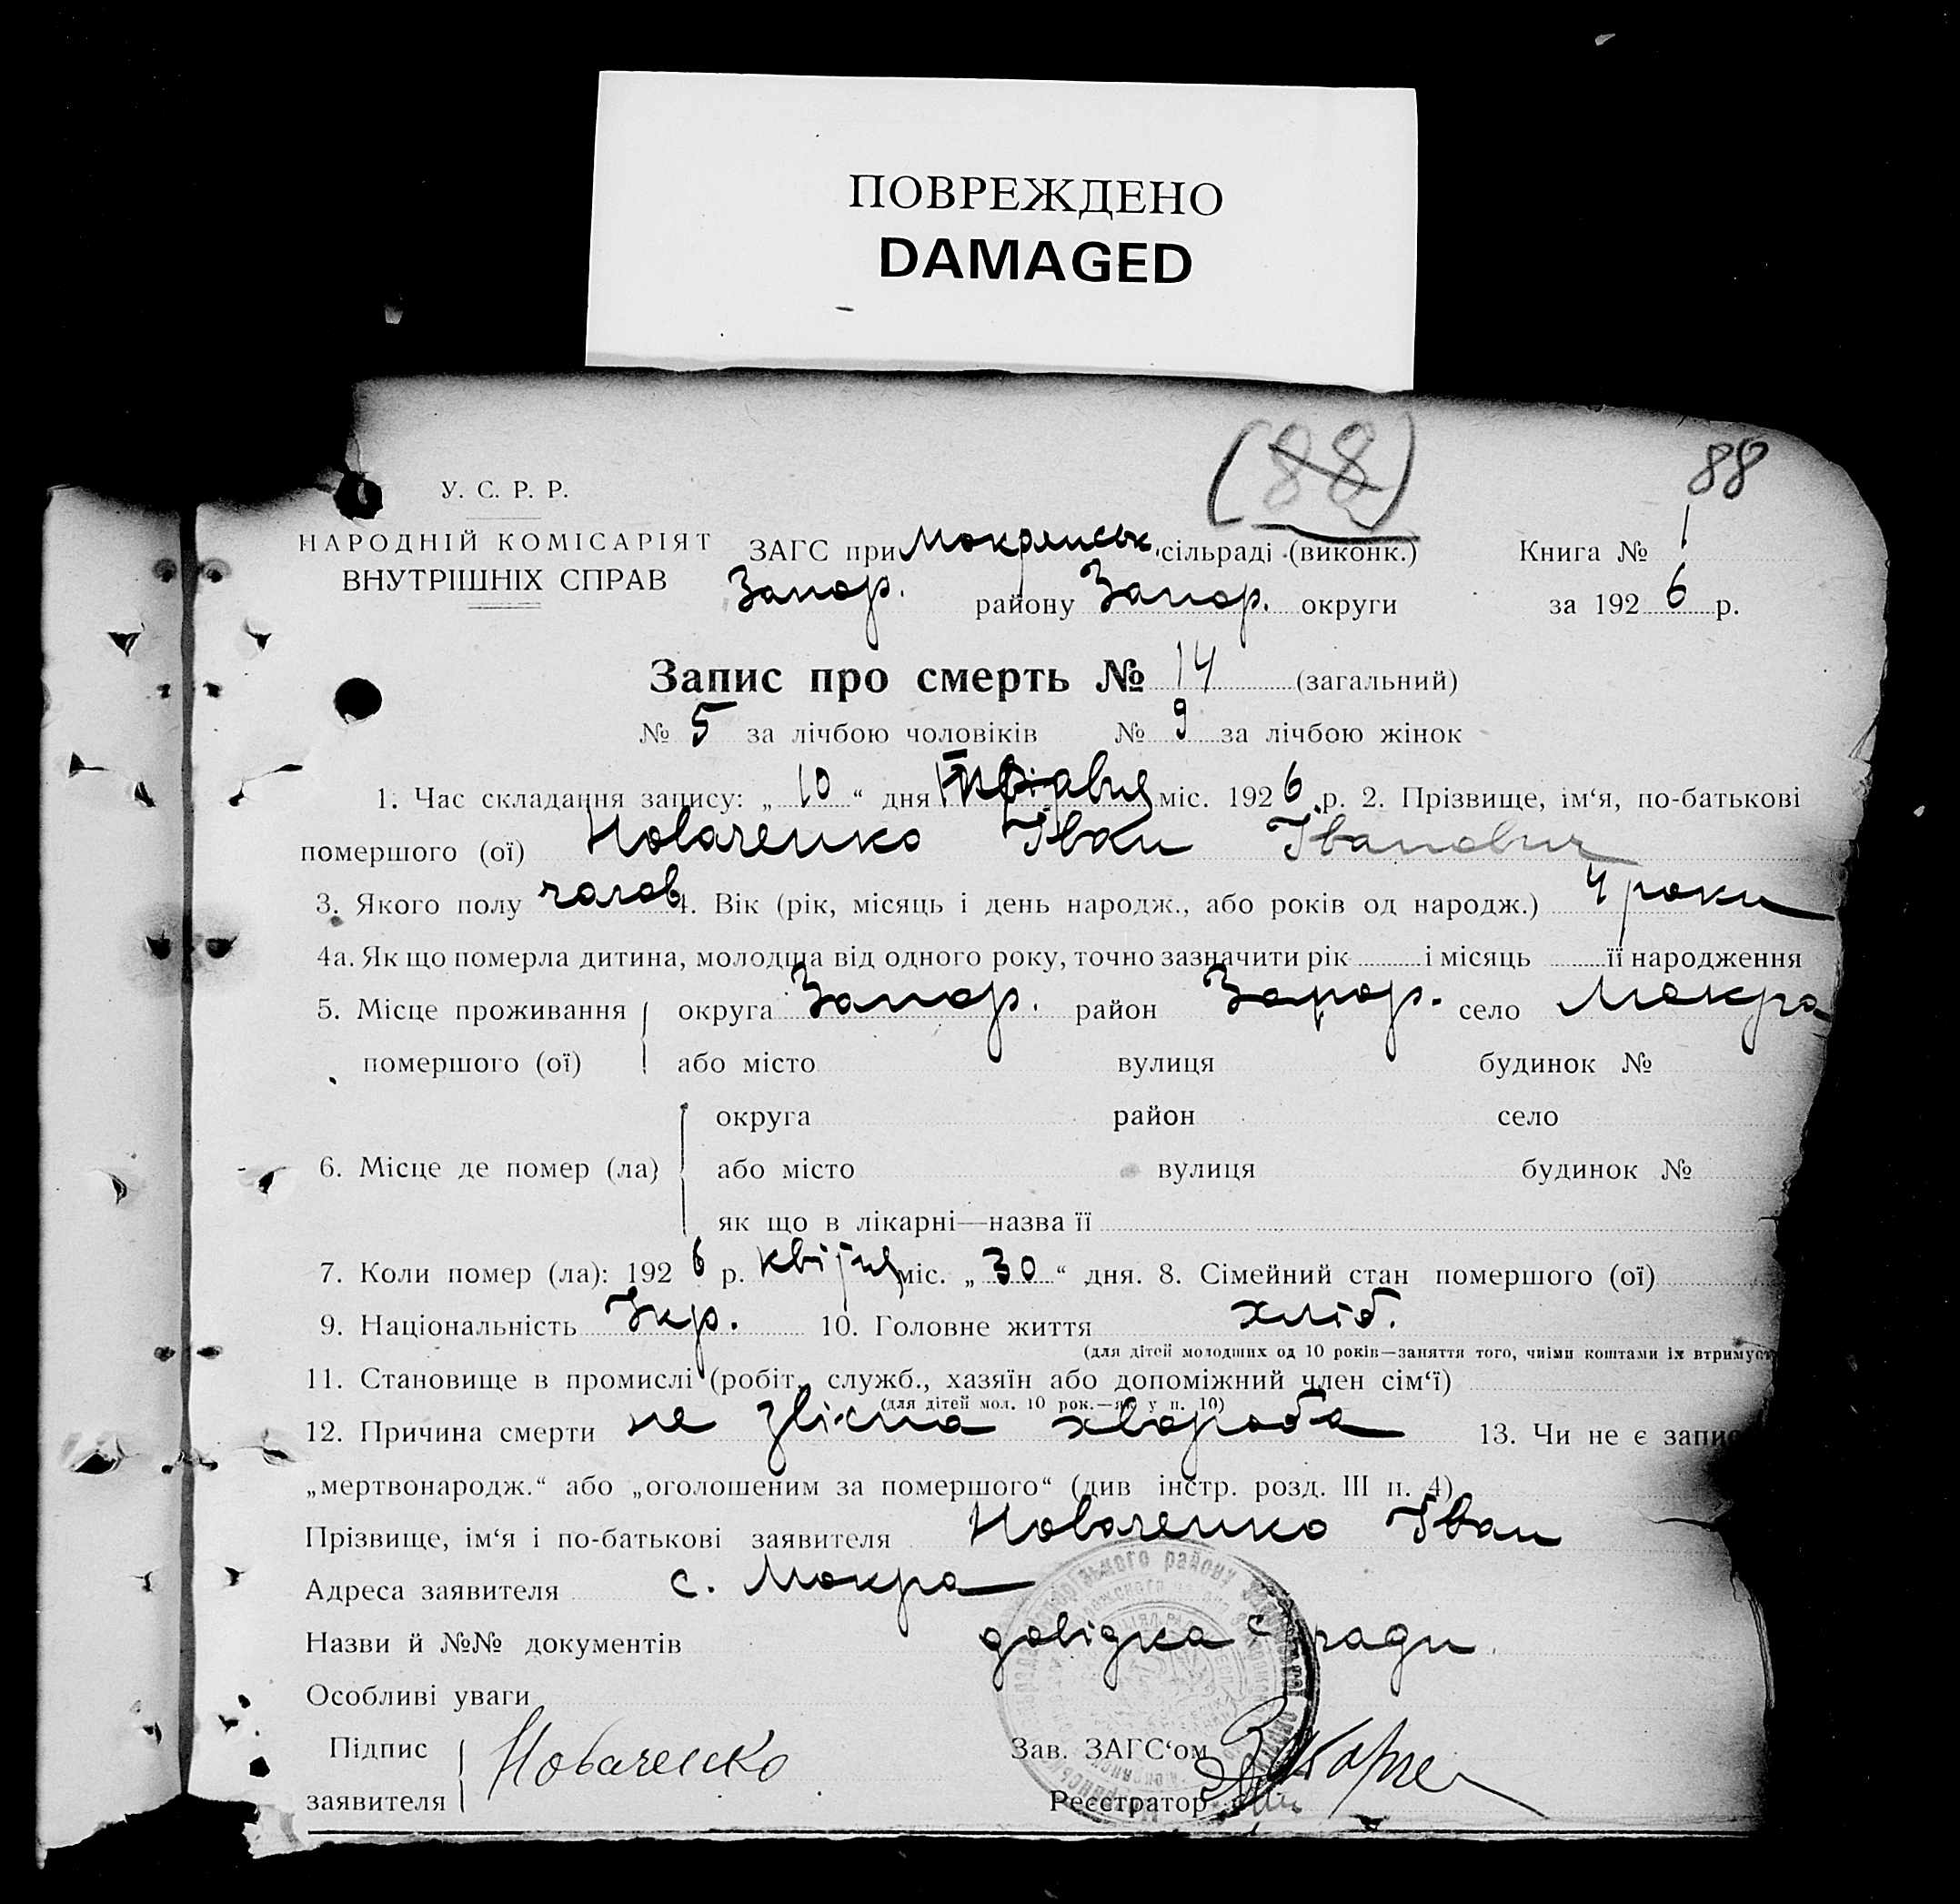 ПОВРЕЖДЕНО
DAMAGED
(88)
88
У. С. Р. Р.
НАРОДНІЙ КОМІСАРІЯТ
ВНУТРІШНІХ СПРАВ
ЗАГС при Мокрянськ. сільраді (виконк.) Книга № 1
Запор. району Запор. округи за 1926 р.
Запис про смерть № 14 (загальний)
№ 5 за лічбою чоловіків № 9 за лічбою жінок
1. Час складання запису: „10“ дня травня міс. 1926 р. 2. Прізвище, ім‘я, по-батькові
помершого (ої) Новаченко Іван Іванович
3. Якого полу чолов. 4. Вік (рік, місяць і день народж., або років од народж.) 4 роки
4а. Як що померла дитина, молодша від одного року, точно зазначити рік і місяць її народження
5. Місце проживання округа Запор. район Запор. село Мокра
помершого (ої) або місто вулиця будинок №
округа район село
6. Місце де помер (ла) або місто вулиця будинок №
як що в лікарні—назва її
7. Коли помер (ла): 1926 р. квітня міс. „30“ дня. 8. Сімейний стан помершого (ої)
9. Національність Укр. 10. Головне життя хліб.
(для дітей молодших од 10 років—заняття того, чиїми коштами їх втримуєт
11. Становище в промислі (робіт., служб., хазяїн або допоміжний член сім‘ї)
(для дітей мол. 10 рок.—як у п. 10)
12. Причина смерти не звісна хвороба 13. Чи не є запис
„мертвонародж.“ або „оголошеним за помершого“ (див інстр. розд. III п. 4)
Прізвище, ім‘я і по-батькові заявителя Новаченко Іван
Адреса заявителя с. Мокра
Назви й №№ документів довідка с ради
Особливі уваги
Підпис Новаченко Зав. ЗАГС‘ом
заявителя Реєстратор